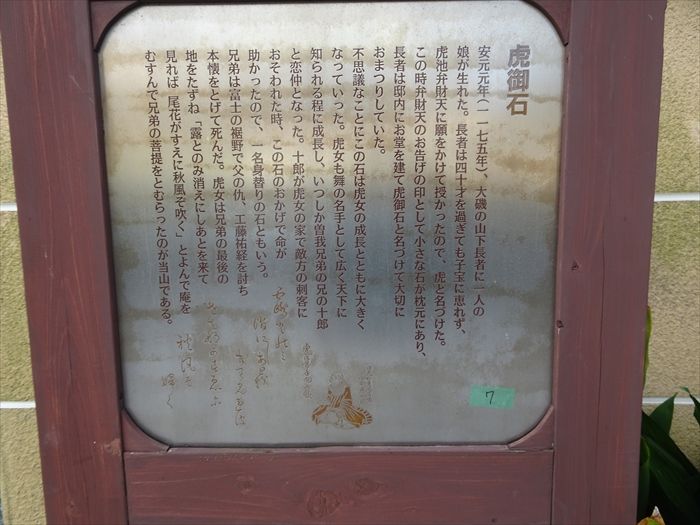 虎御石
安元元年(一一七五年)、大磯の山下長者に一人の
娘が生れた。長者は四十才を過ぎても子宝に恵れず、
虎池弁財天に願をかけて授かったので、虎と名づけた。
この時弁財天のお告げの印として小さな石が枕元にあり、
長者は邸内にお堂を建て虎御石と名づけて大切に
おまつりしていた。
不思議なことにこの石は虎女の成長とともに大きく
なっていった。虎女も舞の名手として広く天下に
知られる程に成長し、いつしか曽我兄弟の兄の十郎
と恋仲となった。十郎が虎女の家で敵方の刺客に
おそわれた時、この石のおかげで命が
助かったので、一名身替りの石ともいう。
兄弟は富士の裾野で父の仇、工藤祐経を討ち
本懐をとげて死んだ。虎女は兄弟の最後の
地をたずね「露とのみ消えにしあとを来て
見れば 尾花がすえに秋風ぞ吹く」とよんで庵を
むすんで兄弟の菩提をとむらったのが当山である。
7